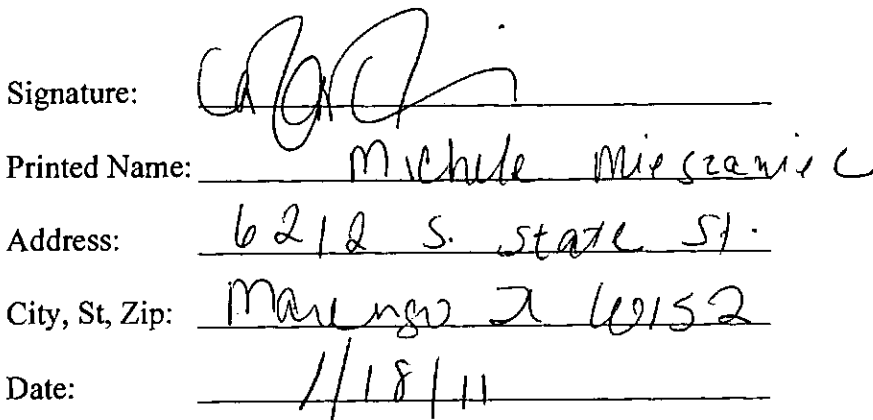 Signature:
Printed Name: Michele Mieszaniec
Address: 6212 S. State St.
City, St, Zip: Marengo Il 60152
Date: 1/18/11